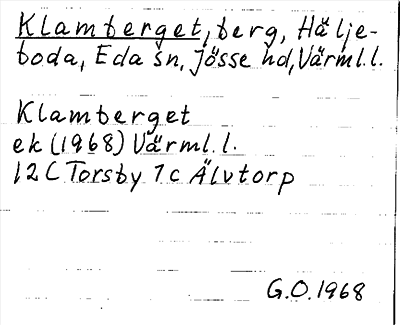 Klamberget, berg, Hälje-
boda, Eda sn, Jösse hd, Värml.l.
Klamberget
ek (1968) Värml.l.
12 C Torsby 7c Älvtorp
G.O. 1968